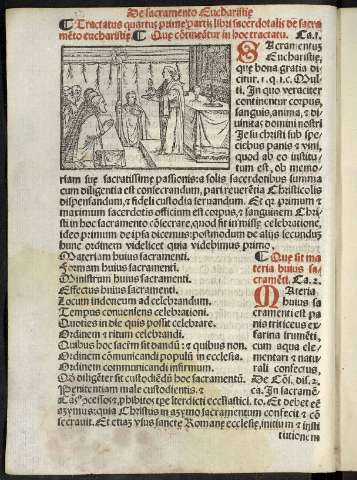 De sacramento Eucharistie
¶ Tractatus quartus prime partis libri sacerdotalis de sacra
mēto eucharistie. ¶ Que cōtineātur in hoc tractatu. Ca.1.
SAcramentuȝ
Eucharistie,
que bona gratia di
citur.1.q.1.c. Mul
ti. In quo veraciter
continentur corpus,
sanguis, anima, & di
uinitas domini nostri
Jesu christi sub spe-
ciebus panis & vini,
quod ab eo institu
tum est, ob memo
riam sue sacratissime passionis: a solis sacerdotibus summa
cum diligentia est consecrandum, pari reuerētia Christicolis
dispensandum, & fideli custodia seruandum. Et qꝛ primum &
maximum sacerdotis officium est corpus, & sanguinem Chri-
sti in hoc sacramento cōficere, quod fit in misse celebratione,
ideo primum de ipsa dicemus: postmodum de alijs secundum
hunc ordinem videlicet quia videbimus primo,
Materiam huius sacramenti.
Formam huius sacramenti.
Ministrum huius sacramenti.
Effectus huius sacramenti.
Locum indoneum ad celebrandum.
Tempus conueniens celebrationi.
Quoties in die quis possit celebrare.
Ordinem & ritum celebrandi.
Quibus hoc sacrm̄ sit dandū & quibus non.
Ordinem cōmunicandi populū in ecclesia.
Ordinem communicandi infirmum.
Qd diligēter sit custodiēdū hoc sacramentū.
Penitentiam male custodientis. &
¶ Que sit ma
teria huius sa-
cramēti. Ca.2.
MAteria
huius sa
cramenti est pa
nis triticeus ex
farina frumēti,
cum aqua ele-
mentari & natu
rali confectus,
De Cōs. dis.2.
ca. In sacramē-
to. Et debet eē
azymus: quia Christus in azymo sacramentum confecit & cō
secrauit. Et etiaȝ vsus sancte Romane ecclesie, initium & insti
tutionem